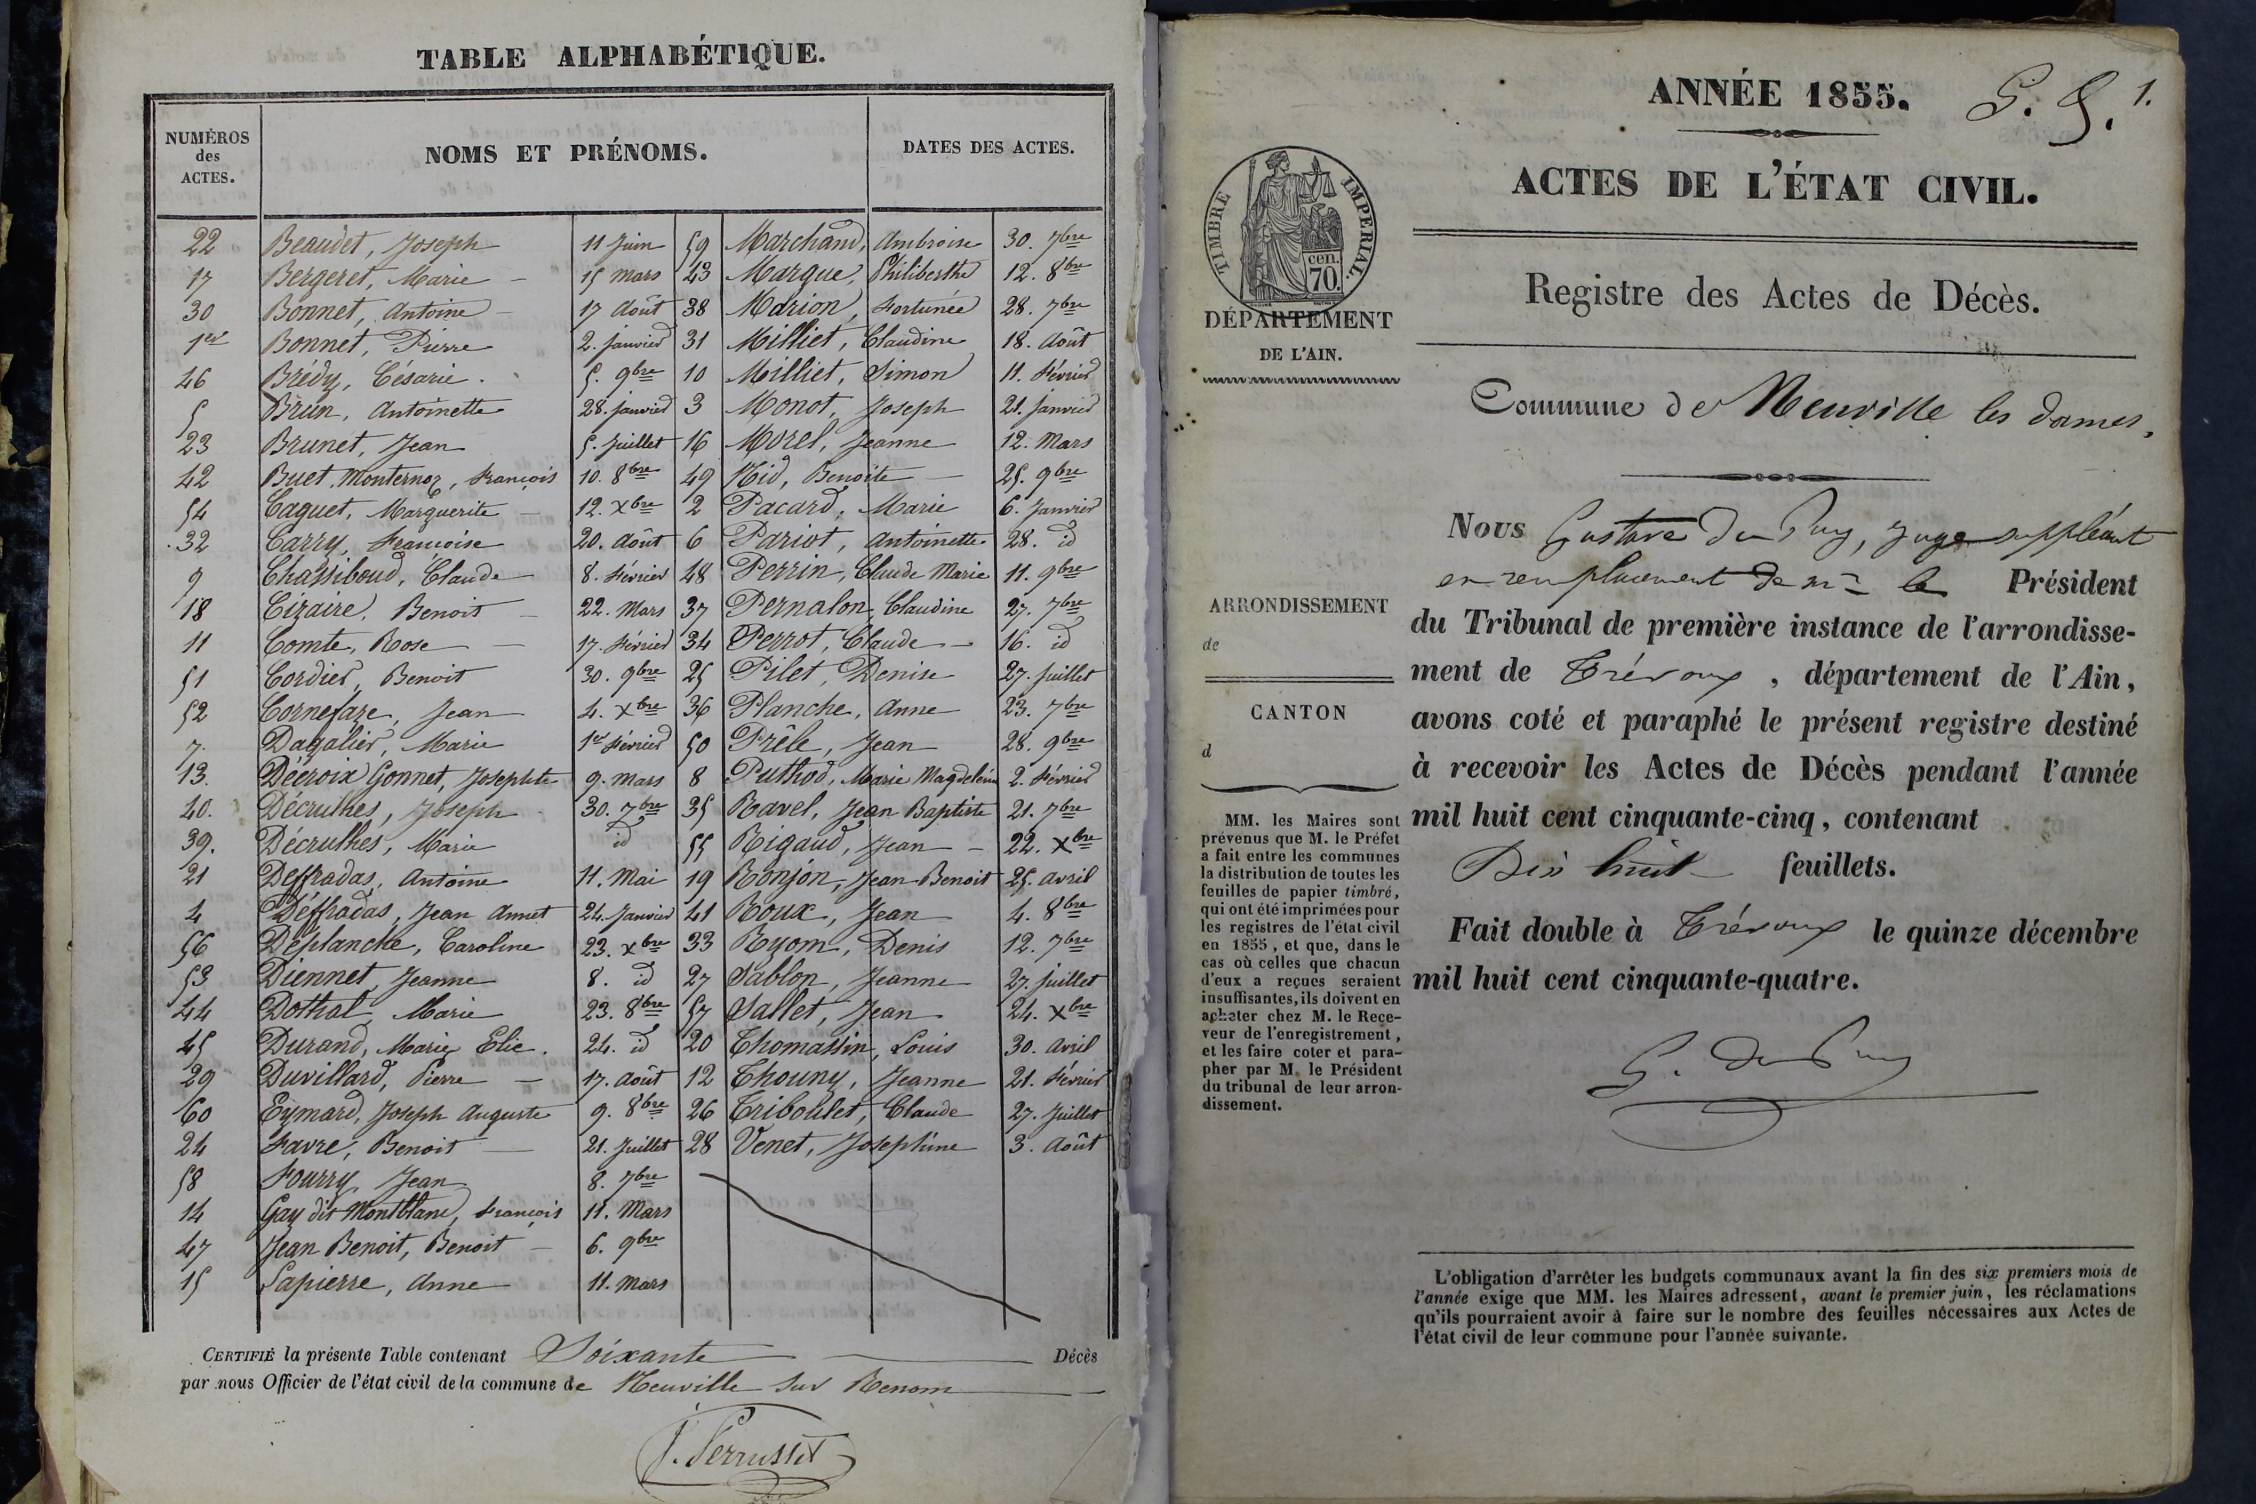 TABLE ALPHABÉTIQUE.
NUMÉROS
des
ACTES.
NOMS ET PRÉNOMS.
DATES DES ACTES.
22 Beaudet, Joseph 11 Juin
17 Bergeret, Marie 15 mars
30 Bonnet, Antoine 17 Août
1er Bonnet, Pierre 2. janvier
46 Brédy, Césarie. 5. 9bre
5 Brun, Antoinette 28. janvier
23 Brunet, Jean 5. Juillet
42 Buet Monternoz, François 10. 8bre
54 Caguet, Marguerite 12. Xbre
32 Carry, Françoise 20. Août
9 Chassiboud, Claude 8. Février
18 Cizaire, Benoit 22. Mars
11 Comte, Rose 17. Février
51 Cordier, Benoit 30. 9bre
52 Cornefaze, Jean 4. Xbre
7. Dagalier, Marie 1er Février
13. Décroix Gonnet, Josephte 9. mars
40. Décruthes, Joseph 30. 7bre
39. Décruthes, Marie id
21 Deffradas, Antoine 11. Mai
4 Déffradas, Jean Annet 24. Janvier
56 Déplanche, Caroline 23. Xbre
53 Diennet, Jeanne 8. id
44 Dothal, Marie 23. 8bre
45 Durand, Marie Elie. 24. id
29 Duvillard, Pierre 17. Août
60 Eymard, Joseph Auguste 9. 8bre
24 Favre, Benoit 21. Juillet
58 Fourry, Jean 8. 7bre
14 Gay dit Montblanc, François 11. Mars
47 Jean Benoit, Benoit 6. 9bre
15 Lapierre, Anne 11. mars
59 Marchand, Ambroise 30. 7bre
43 Marque, Philiberthe 12. 8bre
38 Marion, Fortunée 28. 7bre
31 Milliet, Claudine 18. Août
10 Milliet, Simon 11. Février
3 Monot, Joseph 21. Janvier
16 Morel, Jeanne 12. Mars
49 Nid, Benoite 25. 9bre
2 Pacard, Marie 6. Janvier
6 Pariot, Antoinette 28. id
48 Perrin, Claude Marie 11. 9bre
37 Pernalon, Claudine 27. 7bre
34 Perrot, Claude 16. id
25 Pilet, Denise 27. Juillet
36 Planche, Anne 23. 7bre
50 Prêle, Jean 28. 9bre
8 Puthod, Marie Magdeleine 2. Février
35 Ravel, Jean Baptiste 21. 7bre
55 Rigaud, Jean 22. Xbre
19 Ronjon, Jean Benoit 25. Avril
41 Roux, Jean 4. 8bre
33 Ryom, Denis 12. 7bre
27 Sablon, Jeanne 27. juillet
57 Sallet, Jean 24. Xbre
20 Thomassin, Louis 30. Avril
12 Thouny, Jeanne 21. Février
26 Triboulet, Claude 27. Juillet
28 Venet, Joséphine 3. Août
CERTIFIÉ la présente Table contenant Soixante Décès
par nous Officier de l'état civil de la commune de Neuville sur Renom
J. Perrusset
ANNÉE 1855.
G. P. 1.
ACTES DE L'ÉTAT CIVIL.
TIMBRE IMPERIAL.
cen.
70.
DÉPARTEMENT
DE L'AIN.
Registre des Actes de Décès.
Commune de Neuville les dames.
Nous Gustave Du Puy, Juge suppléant
en remplacement de Mr le Président
du Tribunal de première instance de l'arrondisse-
ment de Trévoux, département de l'Ain,
avons coté et paraphé le présent registre destiné
à recevoir les Actes de Décès pendant l'année
mil huit cent cinquante-cinq, contenant
Dix huit feuillets.
Fait double à Trévoux le quinze décembre
mil huit cent cinquante-quatre.
G. Du Puy
ARRONDISSEMENT
de
CANTON
d
MM. les Maires sont
prévenus que M. le Préfet
a fait entre les communes
la distribution de toutes les
feuilles de papier timbré,
qui ont été imprimées pour
les registres de l'état civil
en 1855, et que, dans le
cas où celles que chacun
d'eux a reçues seraient
insuffisantes, ils doivent en
acheter chez M. le Rece-
veur de l'enregistrement,
et les faire coter et para-
pher par M. le Président
du tribunal de leur arron-
dissement.
L'obligation d'arrêter les budgets communaux avant la fin des six premiers mois de
l'année exige que MM. les Maires adressent, avant le premier juin, les réclamations
qu'ils pourraient avoir à faire sur le nombre des feuilles nécessaires aux Actes de
l'état civil de leur commune pour l'année suivante.